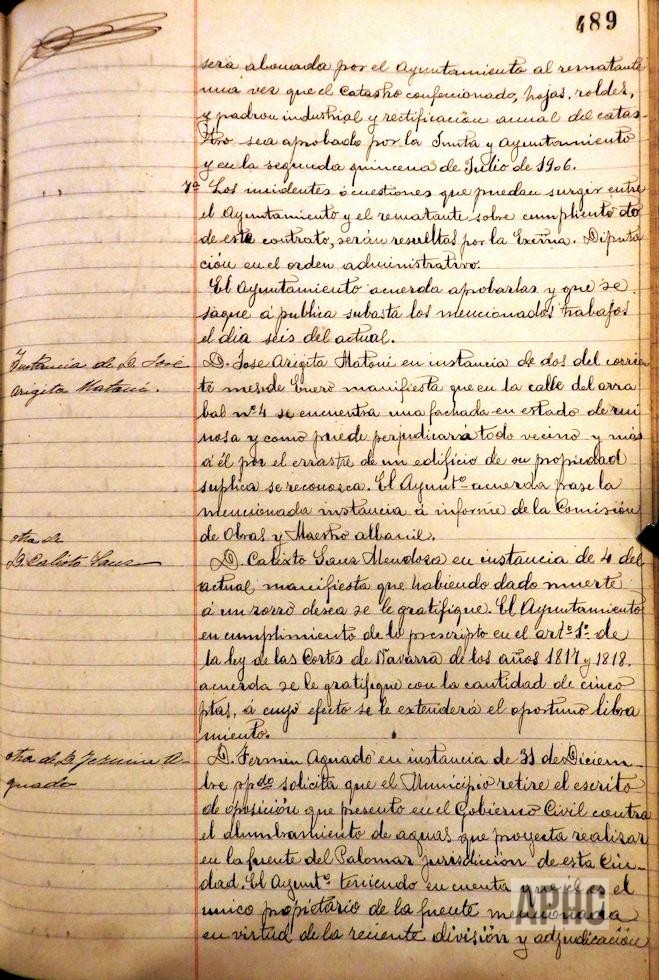 489
será abonada por el Ayuntamiento al rematante
una vez que el Catastro confeccionado, hojas, roldes,
y padron industrial y rectificación anual del catas-
tro sea aprobado por la Junta y Ayuntamiento
y en la segunda quincena de Julio de 1906.
7ª Los incidentes ó cuestiones que puedan surgir entre
el Ayuntamiento y el rematante sobre cumpliento do
de este contrato, serán resueltas por la Excma. Diputa
ción en el orden administrativo.
El Ayuntamiento acuerda aprobarlas y que se
saque á publica subasta los mencionados trabajos
el dia seis del actual.
Instancia de D. José
Arigita Matoni.
D. José Arigita Matoni en instancia de dos del corrien
te mes de Enero manifiesta que en la calle del arra
bal nº 4 se encuentra una fachada en estado de rui
nosa y como puede perjudicar á todo vecino y más
á él por el errastre de un edificio de su propiedad
suplica se reconozca. El Ayuntº acuerda pase la
mencionada instancia á informe de la Comisión
de Obras y Maestro albanil.
otra de
D. Calisto Sanz
D. Calixto Sanz Mendoza en instancia de 4 del
actual manifiesta que habiendo dado muerte
á un zorro desea se le gratifique. El Ayuntamiento
en cumplimiento de lo prescripto en el artº 1º de
la ley de las Cortes de Navarra de los años 1817 y 1818.
acuerda se le gratifique con la cantidad de cinco
ptas, á cuyo efecto se le extenderá el oportuno libra
miento.
otra de D. Fermin A-
guado
D. Fermin Aguado en instancia de 31 de Diciem-
bre ppdo solicita que el Municipio retire el escrito
de oposición que presento en el Gobierno Civil contra
el alumbramiento de aguas que proyecta realizar
en la fuente del Palomar jurisdiccion de esta Ciu-
dad. El Ayuntº teniendo en cuenta que él es el
unico propietario de la fuente mencionada
en virtud de la reciente división y adjudicación
APHC